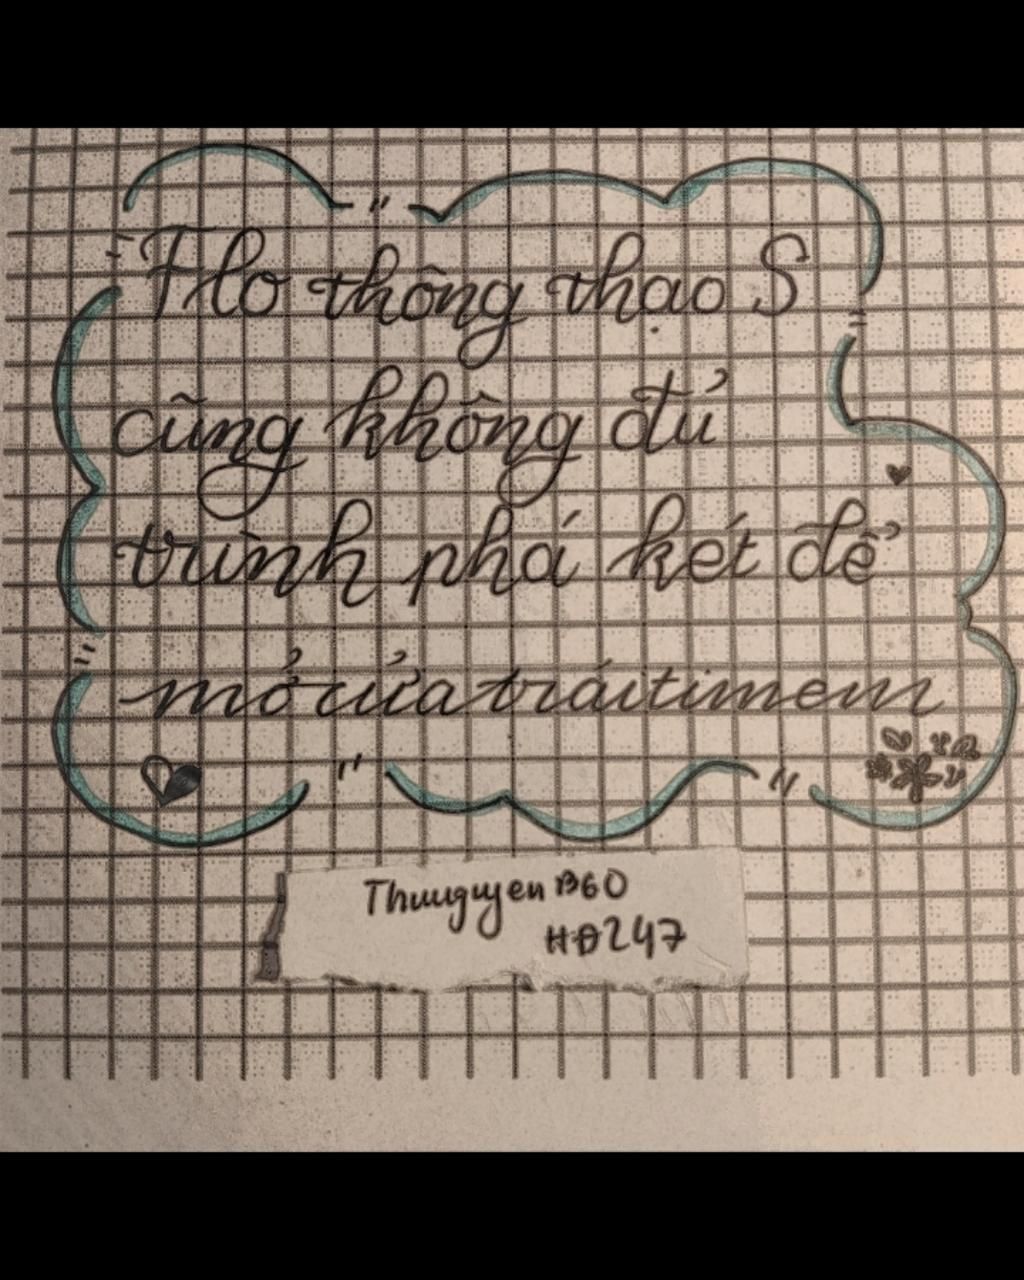 Flo thông thạo S
cũng không đủ
trình phá két để
mở cửa trái tim em
Thuuguyen B60
HD247